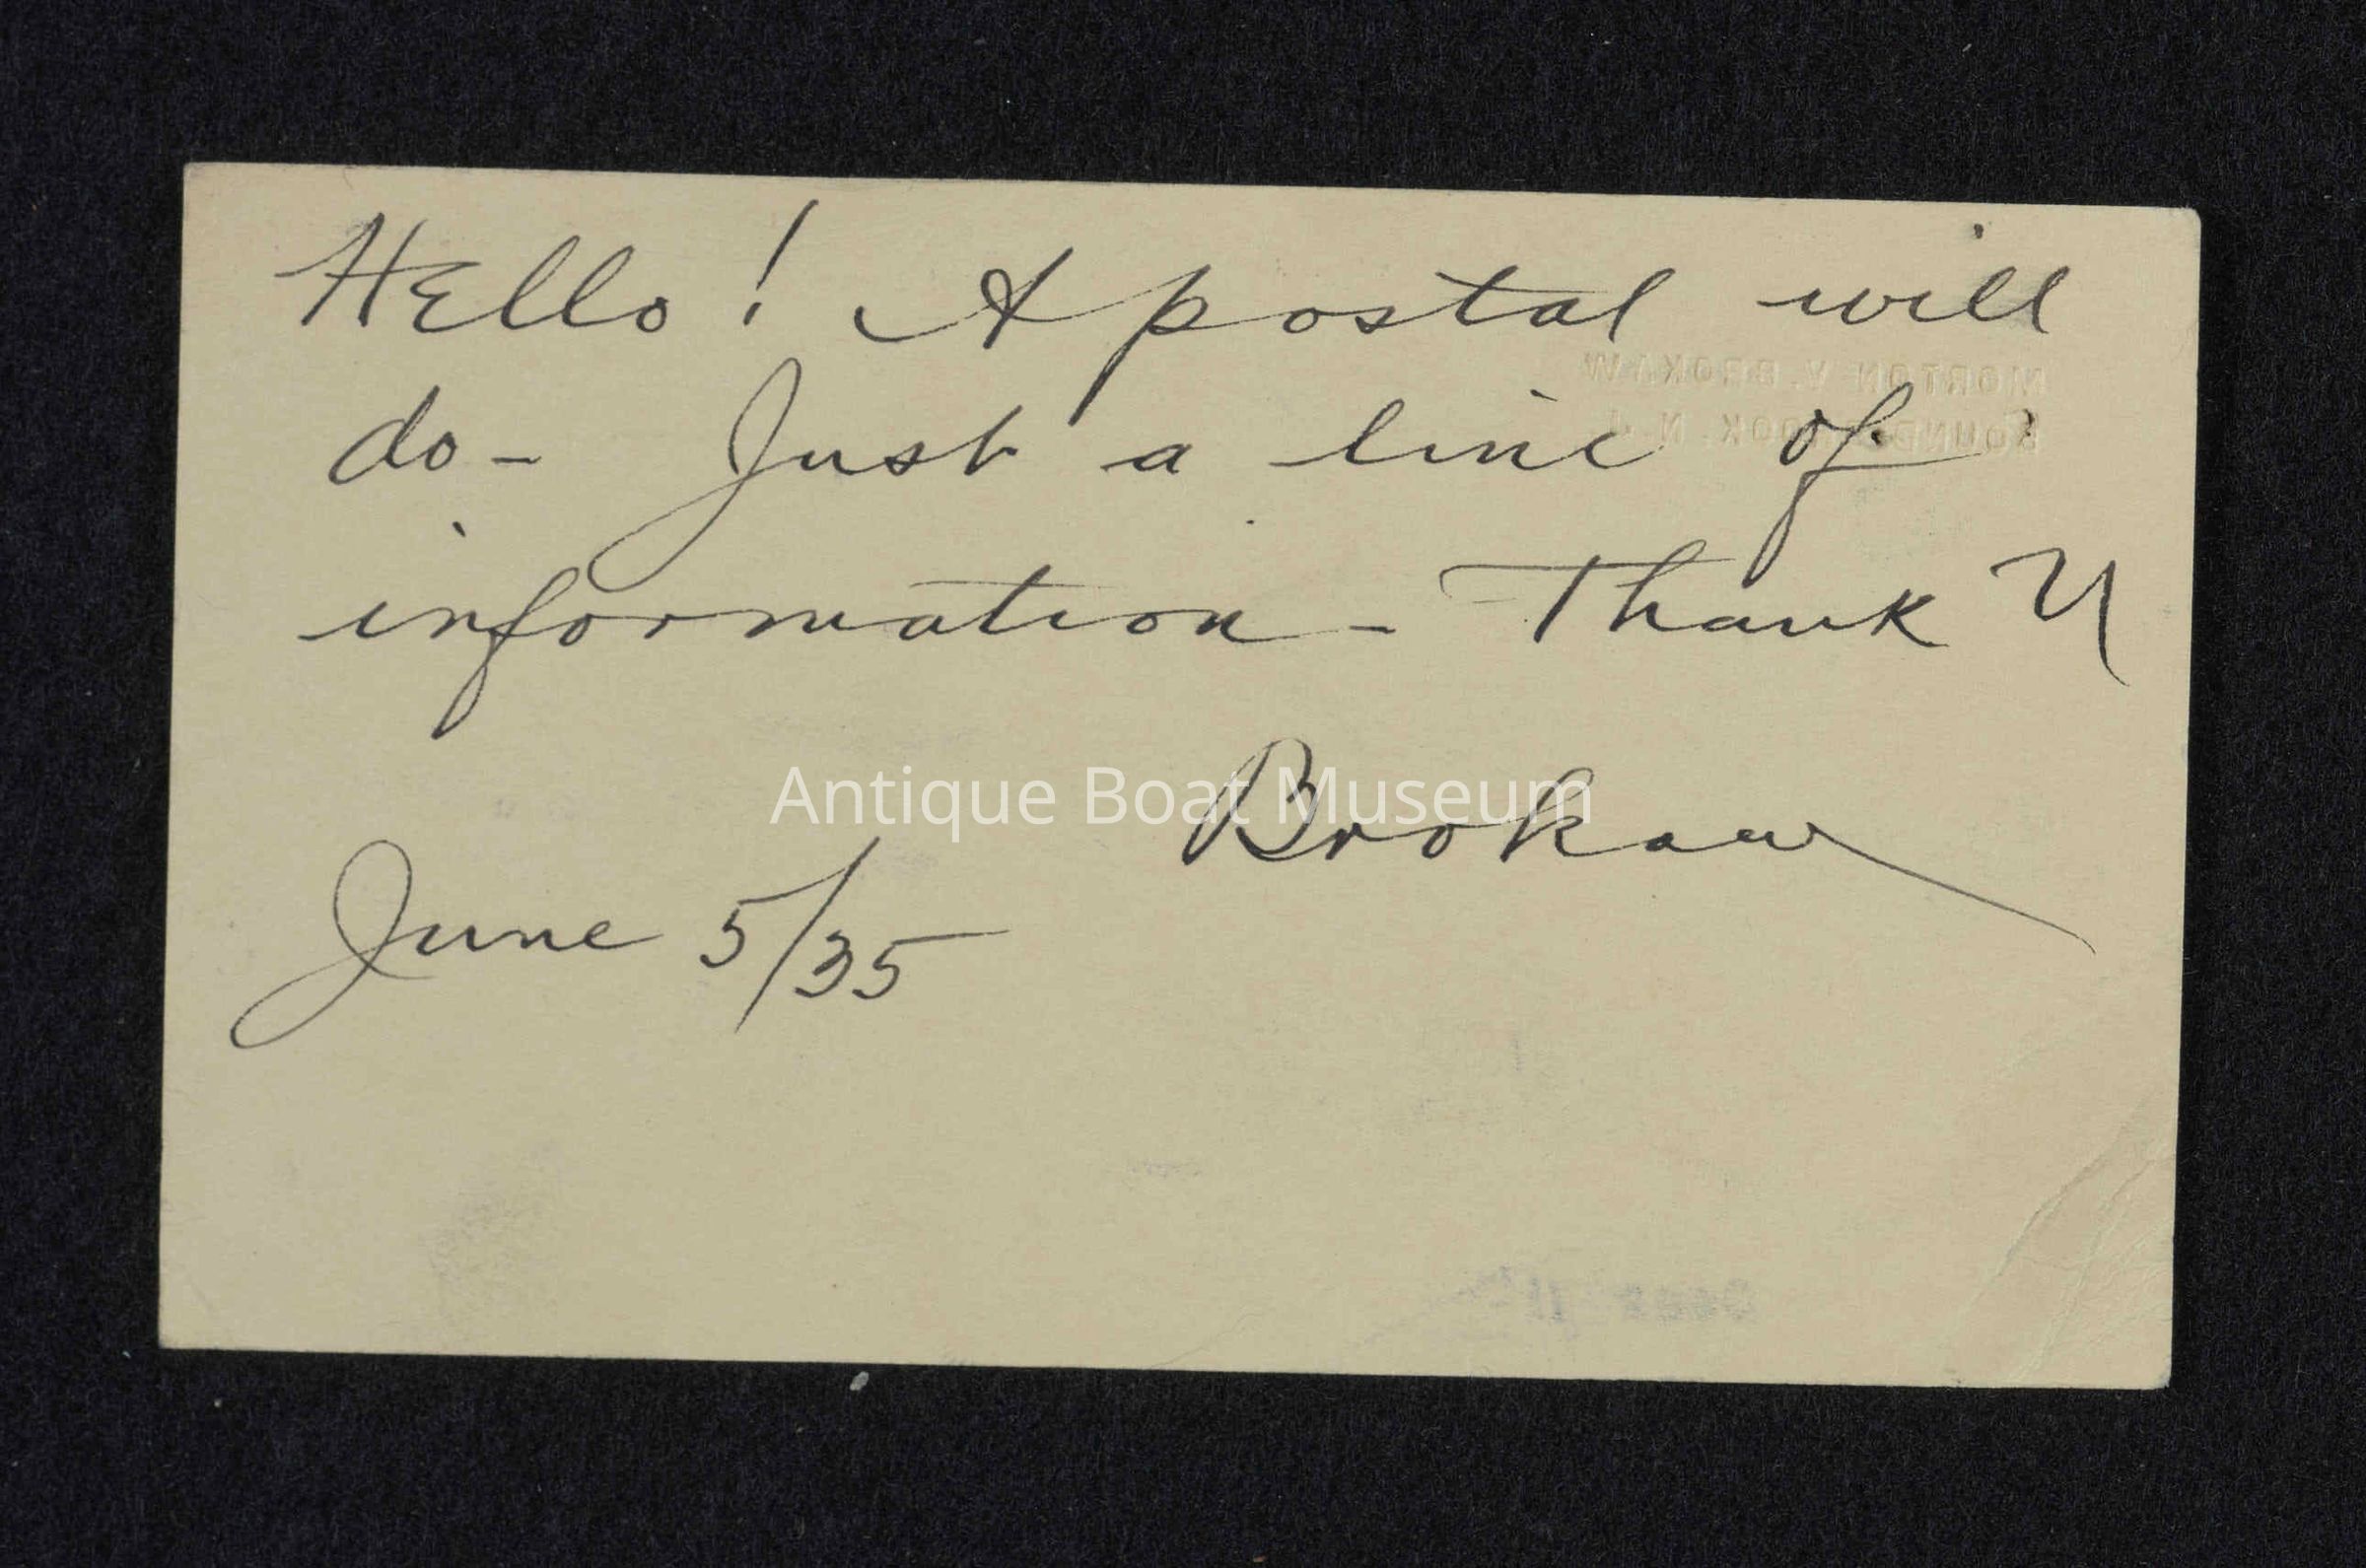 Hello! A postal will
MORTON V. BROKAW
do- Just a line of
BOUND BROOK. N. J.
information - Thank U
Antique Boat Museum
Brokaw
June 5/35